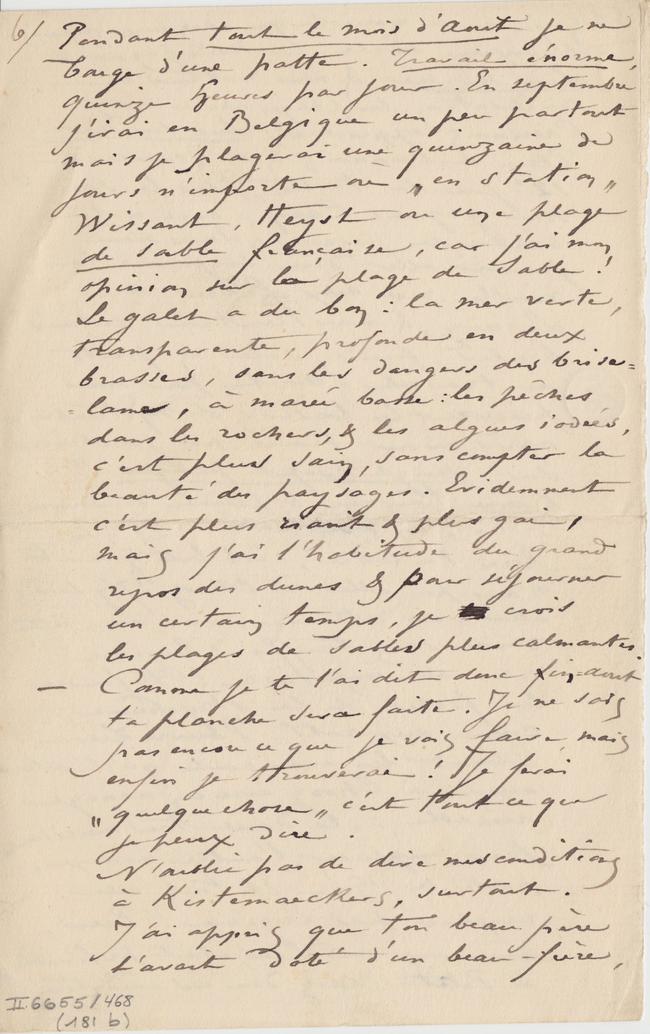 6/ Pendant tout le mois d'Aout je ne
bouge d'une patte. Travail énorme,
quinze heures par jour. En septembre
j'irai en Belgique un peu partout
mais je plagerai une quinzaine de
jours n'importe où „en station„
Wissant, Heyst ou une plage
de sable française, car j'ai mon
opinion sur la plage de Sable!
Le galet a du bon : la mer verte,
transparente, profonde en deux
brasses, sans les dangers des brise=
=lames, à marée basse : les pêches
dans les rochers, & les algues iodées,
c'est plus sain, sans compter la
beauté des paysages. Evidemment
c'est plus riant & plus gai,
mais j'ai l'habitude du grand
repos des dunes & pour séjourner
un certain temps, je crois
les plages de sables plus calmantes.
— Comme je te l'ai dit donc fin-aout
ta planche sera faite. Je ne sais
pas encore ce que je vais faire mais
enfin je trouverai ! Je ferai
„quelquechose„ c'est tout ce que
je peux dire.
N'oublie pas de dire mes conditions
à Kistemaeckers, surtout.
J'ai appris que ton beau père
t'avait doté d'un beau-frère,
II 6655/468
(181 b)